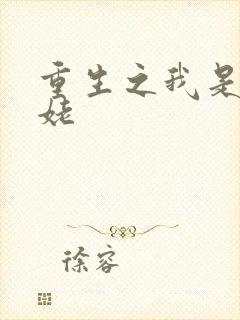 重生之我是
姥
徐容